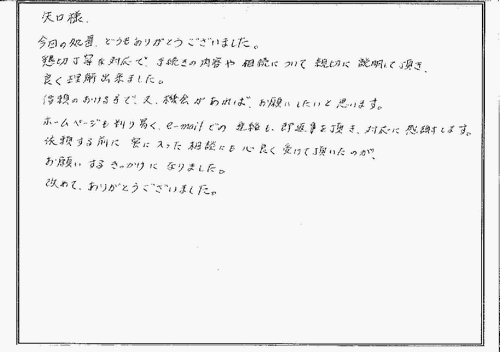 矢口様、
今回の処置、どうもありがとうございました。
懇切丁寧な対応で、手続きの内容や相続について親切に説明して頂き、
良く理解出来ました。
皆様のおかげまで、又、機会があれば、お願いしたいと思います。
ホームページも判り易く、e-mailでの連絡も、即返事を頂き、対応に感謝してます。
依頼する前に気に入った相談にも心良く受けて頂いたのが、
お願いするきっかけになりました。
改めて、ありがとうございました。